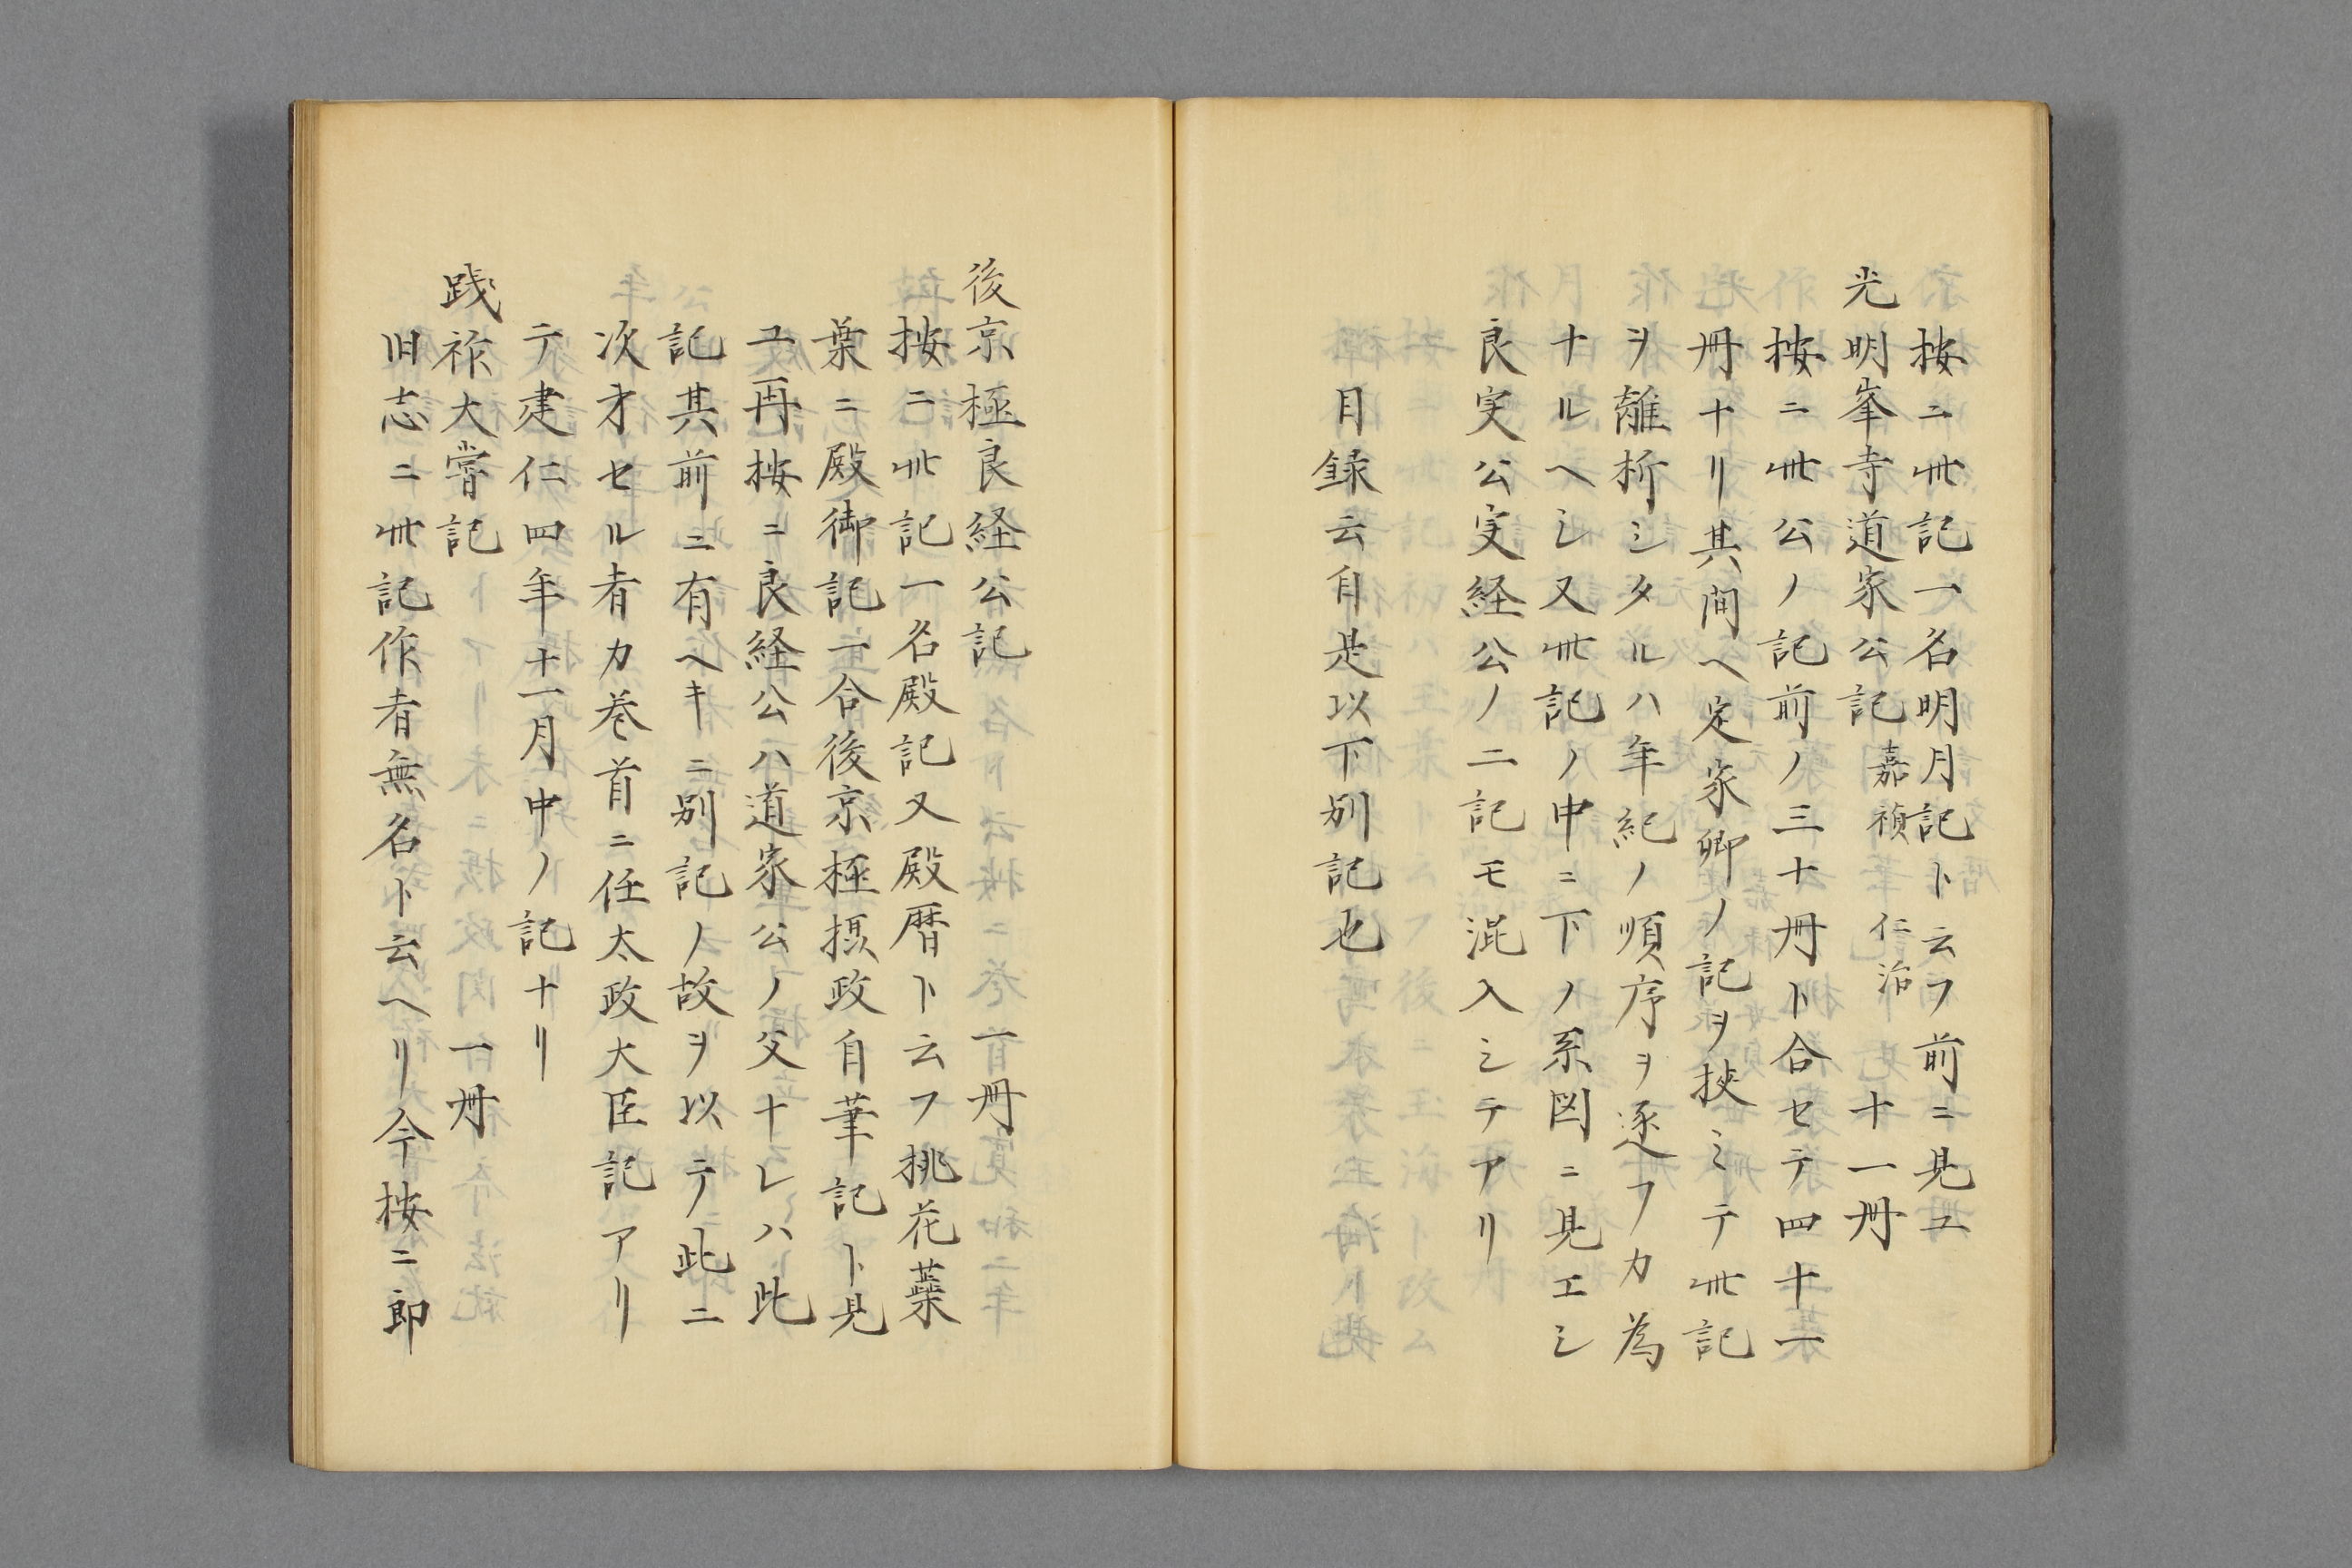 按ニ此記一名明月記ト云フ前ニ見ユ
光明峯寺道家公記 嘉禎 仁治 十一冊
按ニ此公ノ記前ノ三十冊ト合セテ四十一
冊ナリ其間ヘ定家卿ノ記ヲ挟ミテ此記
ヲ離折シタルハ年紀ノ順序ヲ逐フカ為
ナルヘシ又此記ノ中ニ下ノ系図ニ見エシ
良実公実経公ノ二記モ混入シテアリ
目録云自是以下別記也
後京極良経公記 一冊
按ニ此記一名殿記又殿暦ト云フ桃花蘂
葉ニ殿御記一合後京極摂政自筆記ト見
ユ再按ニ良経公ハ道家公ノ父ナレハ此
記其前ニ有ヘキニ別記ノ故ヲ以テ此ニ
次才セル者カ巻首ニ任太政大臣記アリ
テ建仁四年十一月中ノ記ナリ
践祚大嘗記 一冊
旧志ニ此記作者無名ト云ヘリ今按ニ即